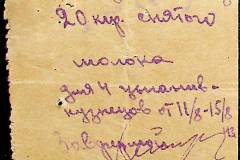 20 кгр. снятого
молока
для 4 испанив-
кузнецов от 11/8-15/8